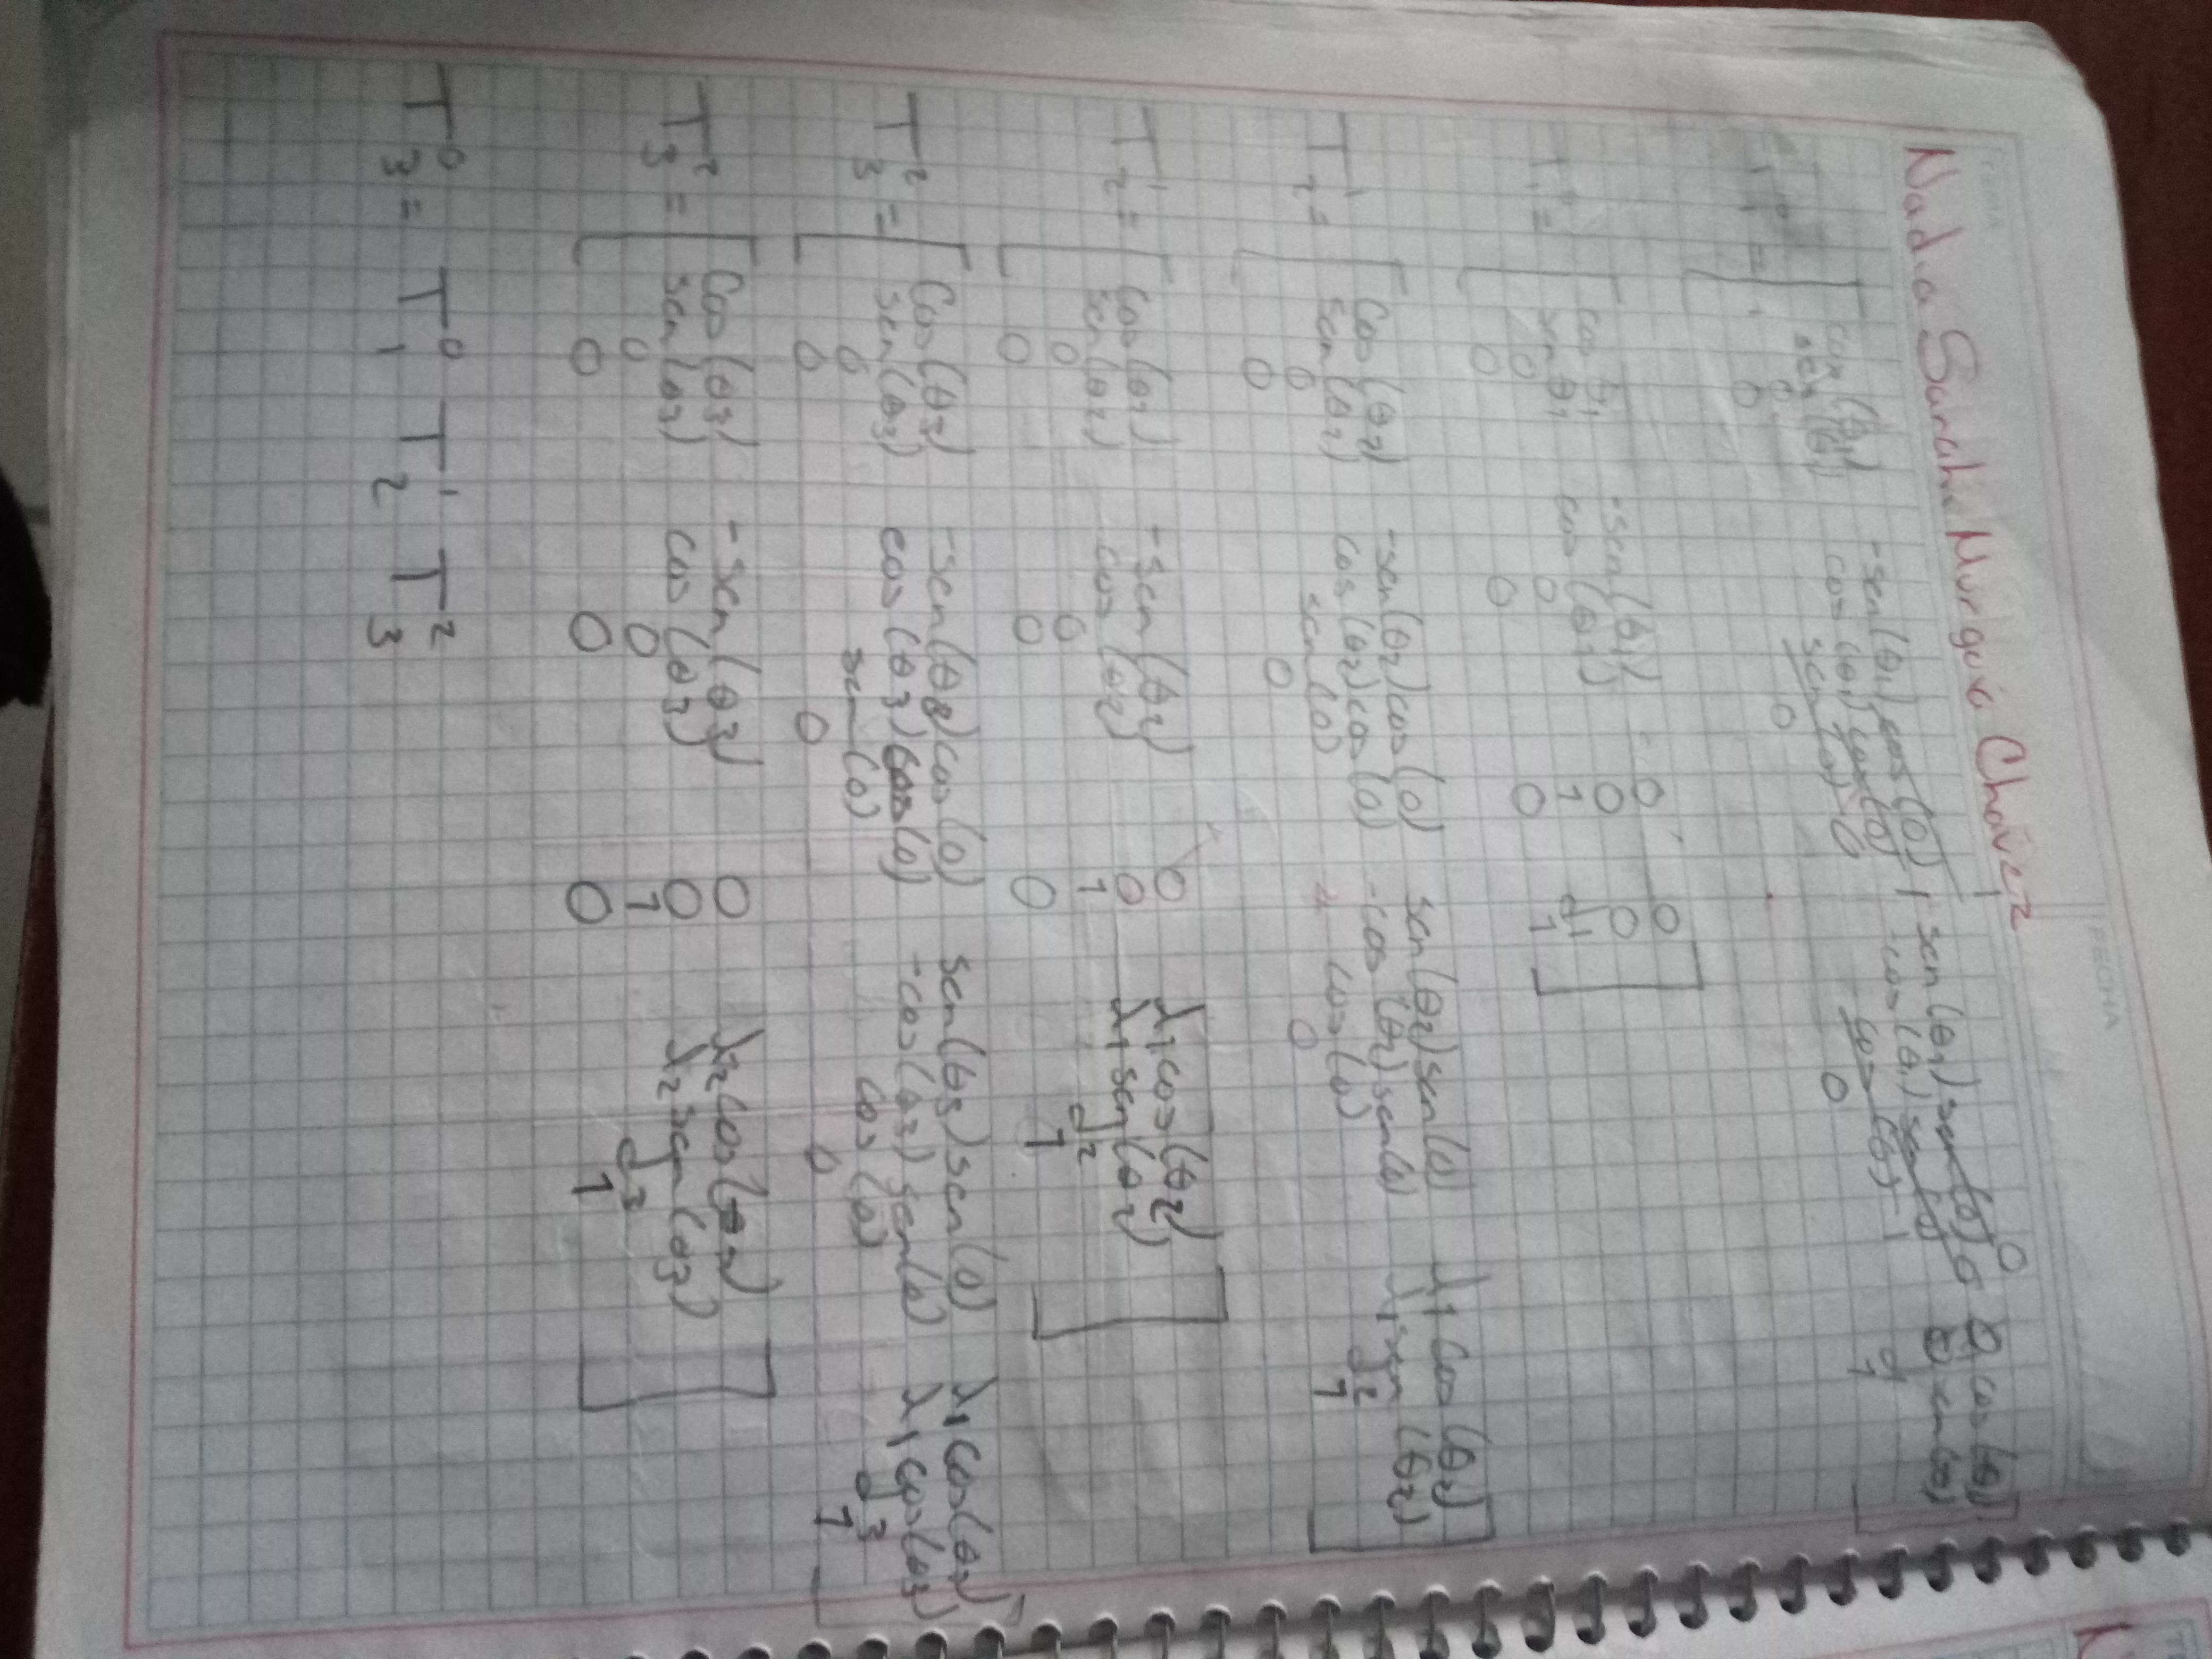 FECHA
Nadia Sarahi Murguia Chavez
T⁰₁ = [ cos(θ₁) -sen(θ₁)cos(0) 1 sen(θ₁)sen(0) 0 0 cos(θ₁)
sen(θ₁) cos(θ₁)cos(0) -cos(θ₁)sen(0) 0 sen(θ₁)
0 sen(0) 0 cos(0) 1 d1
0 0 0 1 ]
cos θ₁ -sen(θ₁) 0 0
sen θ₁ cos(θ₁) 0 0
0 0 1 d1
0 0 0 1
T¹₂ = [ cos(θ₂) -sen(θ₂)cos(0) sen(θ₂)sen(0) λ1 cos(θ₂)
sen(θ₂) cos(θ₂)cos(0) -cos(θ₂)sen(0) λ1 sen(θ₂)
0 sen(0) cos(0) d2
0 0 0 1 ]
T¹₂ = [ cos(θ₂) -sen(θ₂) 0 λ1 cos(θ₂)
sen(θ₂) cos(θ₂) 0 λ1 sen(θ₂)
0 0 1 d2
0 0 0 1 ]
T²₃ = [ cos(θ3) -sen(θ3)cos(0) sen(θ3)sen(0) λ1 cos(θ3)
sen(θ3) cos(θ3)cos(0) -cos(θ3)sen(0) λ1 cos(θ3)
0 sen(0) cos(0) d3
0 0 0 1
T²₃ = [ cos(θ3) -sen(θ3) 0 λ2 cos(θ3)
sen(θ3) cos(θ3) 0 λ2 sen(θ3)
0 0 1 d3
0 0 0 1 ]
T⁰₃ = T⁰₁ T¹₂ T²₃